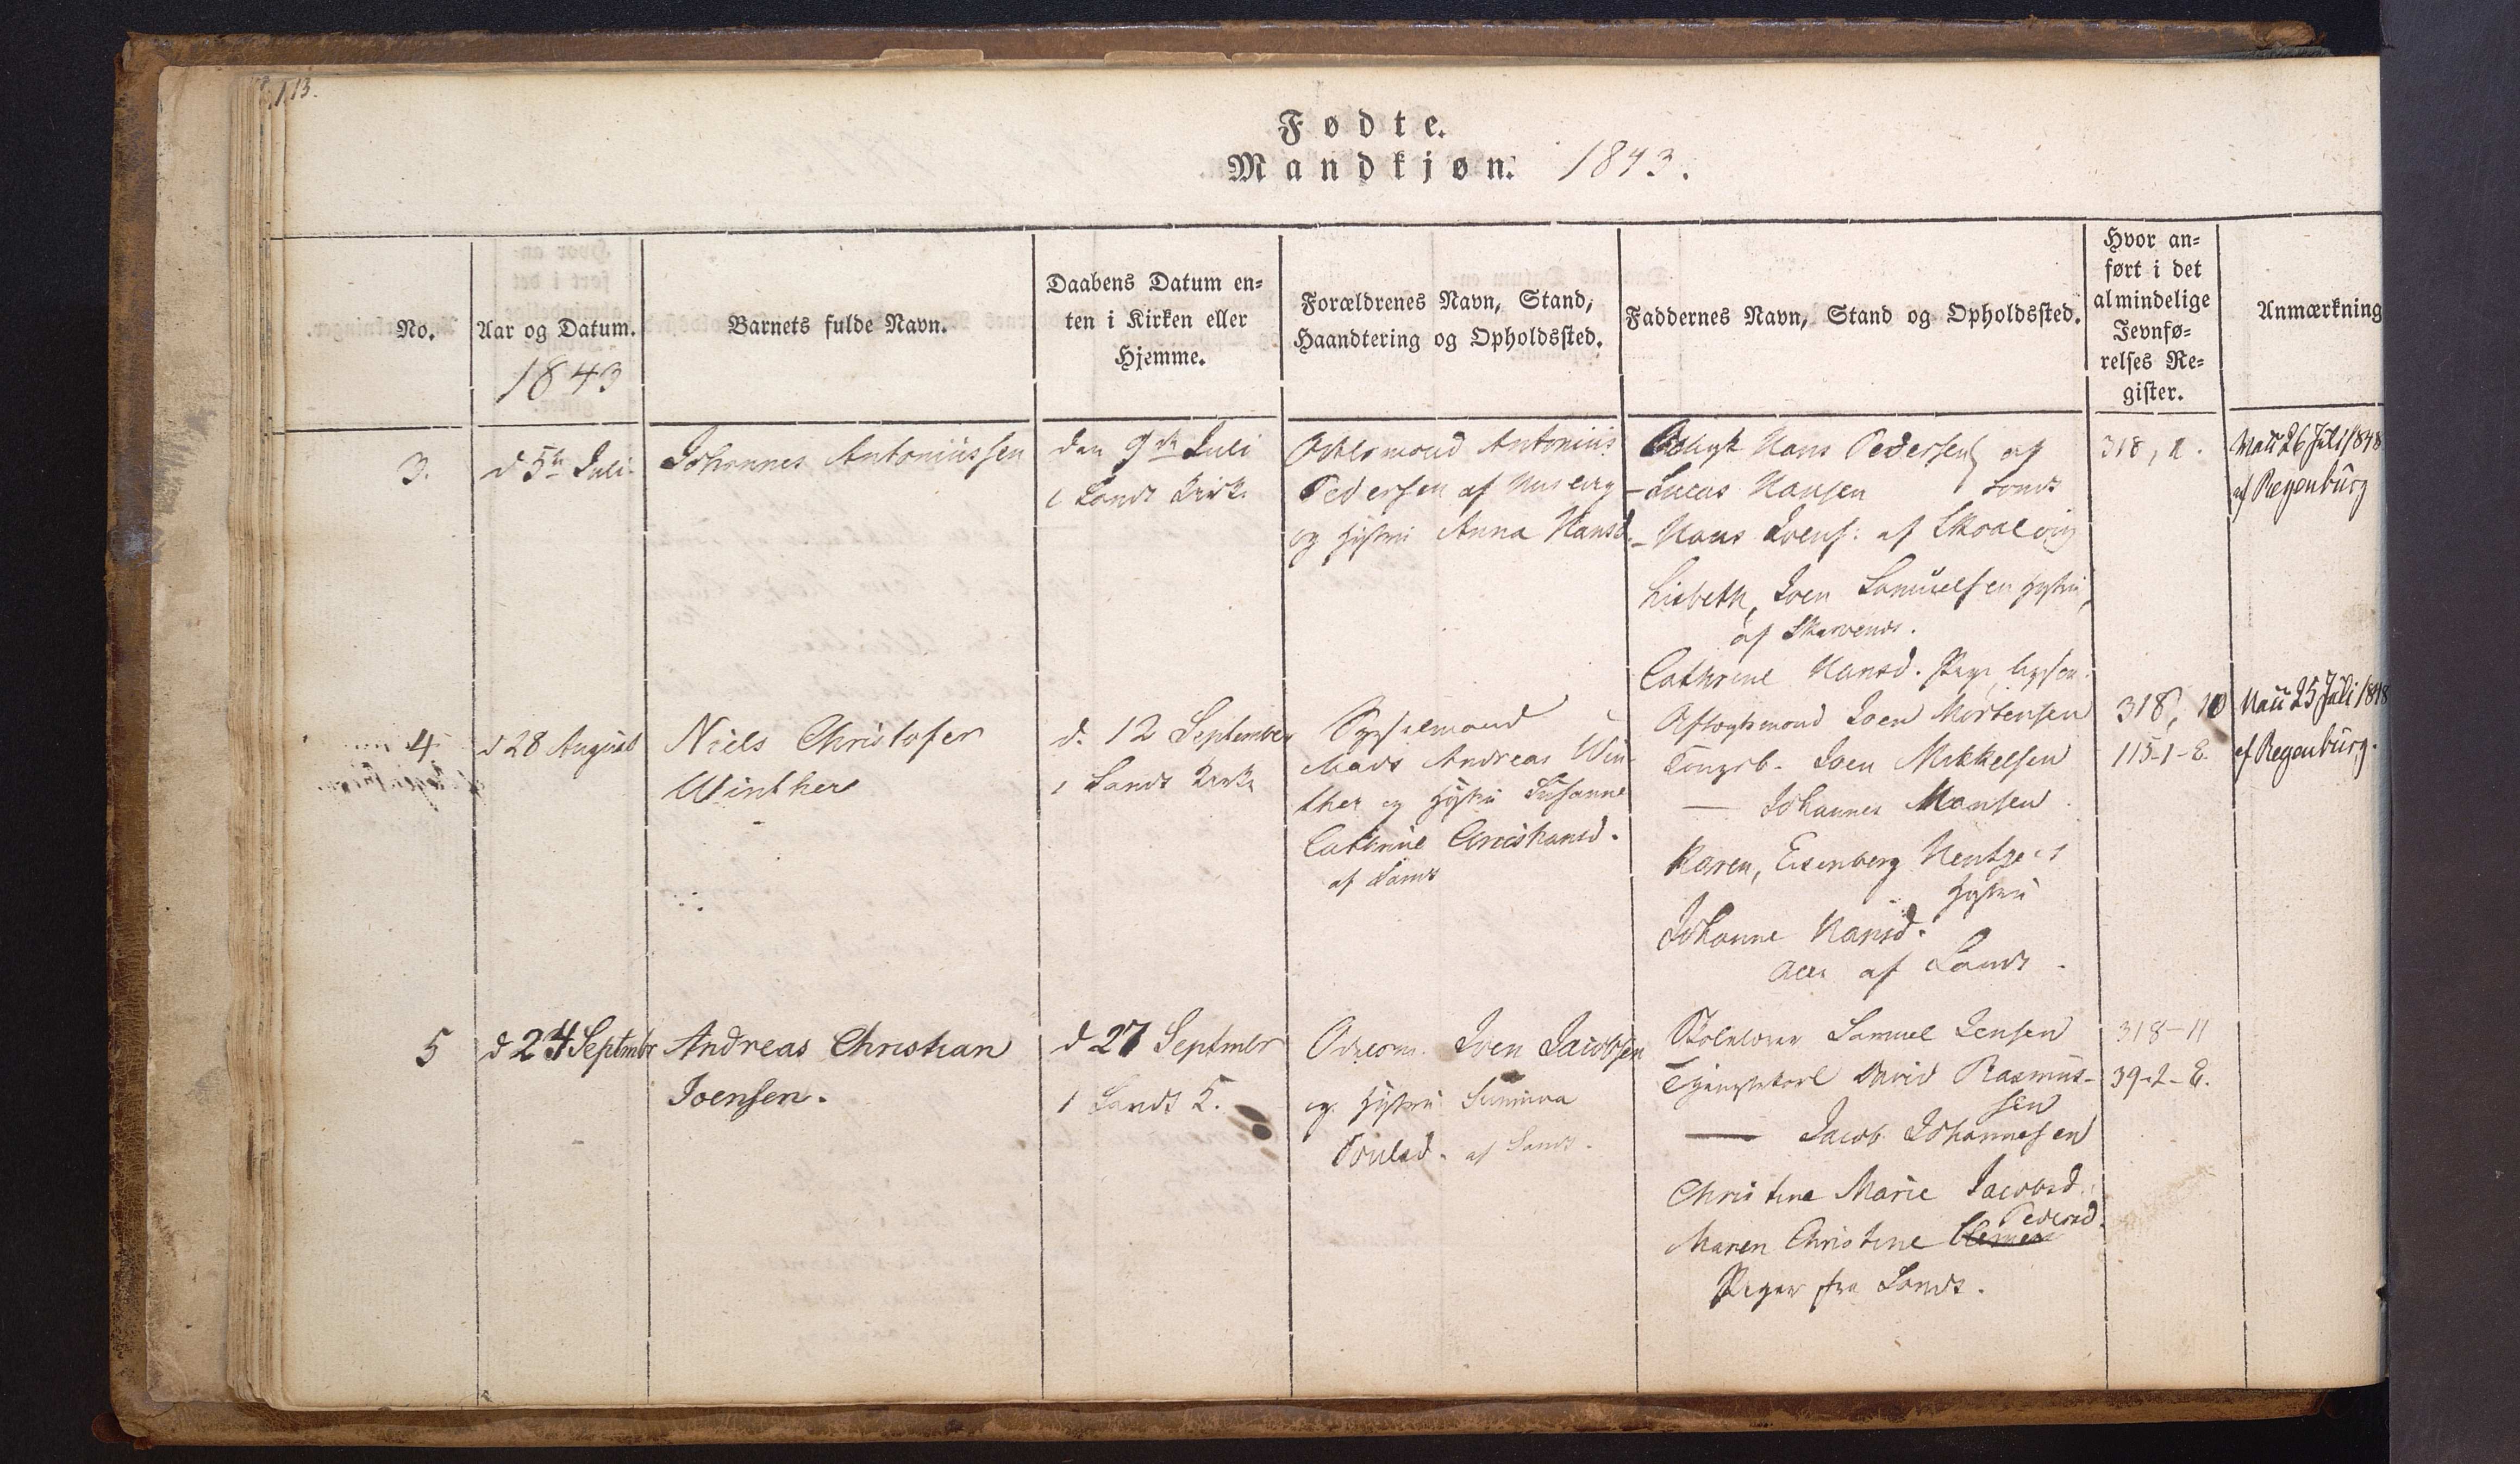 113.
Fødte.
Mandkjøn. 1843.
No.
Aar og Datum.
1843
Barnets fulde Navn.
Daabens Datum en-
ten i Kirken eller
Hjemme.
Forældrenes Navn, Stand,
Haandtering og Opholdssted.
Faddernes Navn, Stand og Opholdssted.
Hvor an-
ført i det
almindelige
Jevnfø-
relses Re-
gister.
Anmærkning
3.
d 5te Juli
Johannes Antoniussen
den 9de Juli
i Sands Kirke
Antonius
Pedersen af Huseby
og Hustru Anna Hansd.
Hans Pedersen af
- Lucas Hansen Sands
- Hans Joens: af Skaalevig
Lisbeth, Joen Samuelsen Hustru,
af Skarvenes.
Cathrine Hansd. Pige
318,
Vacc 26 Juli 1848
af Regenburg
4
d 28 August
Niels Christofer
Winther
d. 12 September
i Sands Kirke
Sysselmand
Mads Andreas Win-
ther og Hustru Susanne
Cathrine Christiansd.
af Sand
Aftægtsmand Joen Mortensen
Kongsb. Joen Mikkelsen
— Johannes Hansen
Karen, Eisenberg Hentzes
Hustru
Johanne Hansd.
alle af Sands.
318, 10
115-1-E.
Vacc 25 Juli 1848
af Regenburg.
5
d 24 Septmbr
Andreas Christian
Joensen.
d 27 Septmbr
i Sands K.
Joen Jacobsen
og Hustru Sunniva
Poulsd. af Sands.
Skolelærer Samuel Jensen
Tjenestekarl David Rasmus-
sen
— Jacob Johannesen
Christine Marie Jacobsd.
Pedersd.
Maren Christine
Piger fra Sands.
318-11
39-2-E.